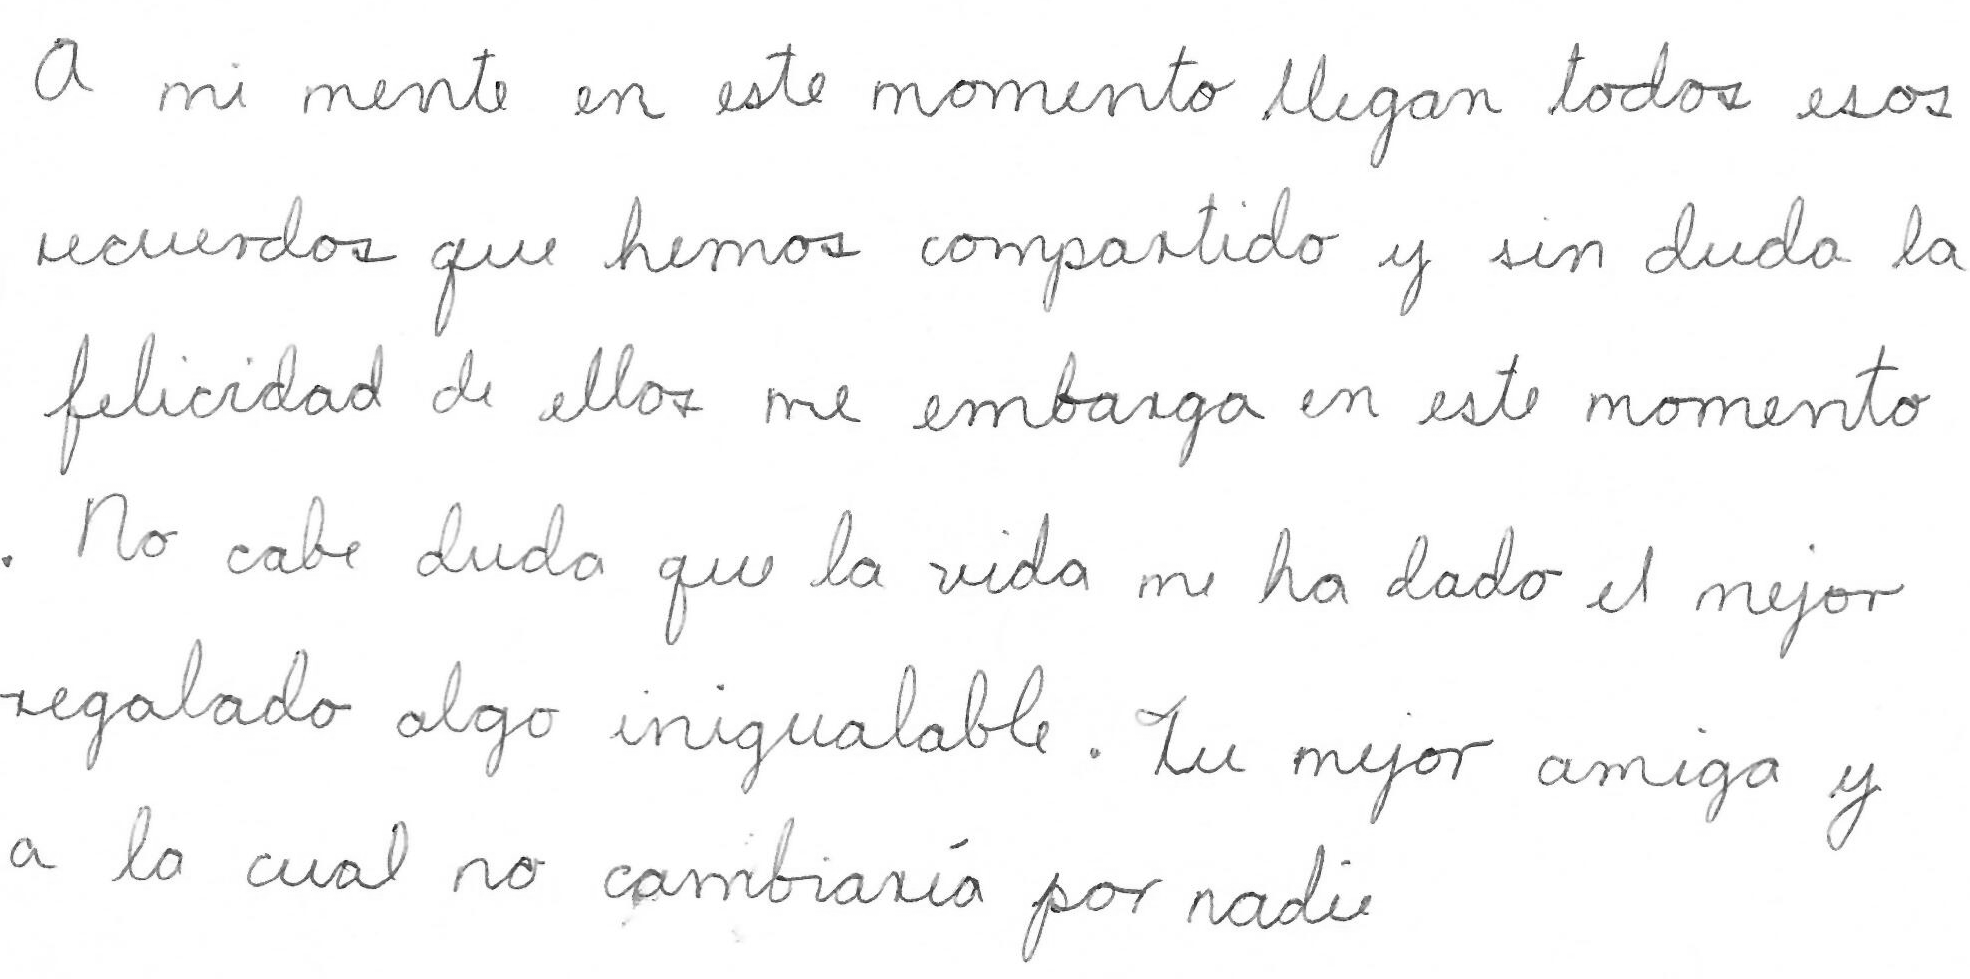 A mi mente en este momento llegan todos esos
recuerdos que hemos compartido y sin duda la
felicidad de ellos me embarga en este momento
. No cabe duda que la vida me ha dado el mejor
regalado algo inigualable. Tu mejor amiga y
a la cual no cambiaría por nadie